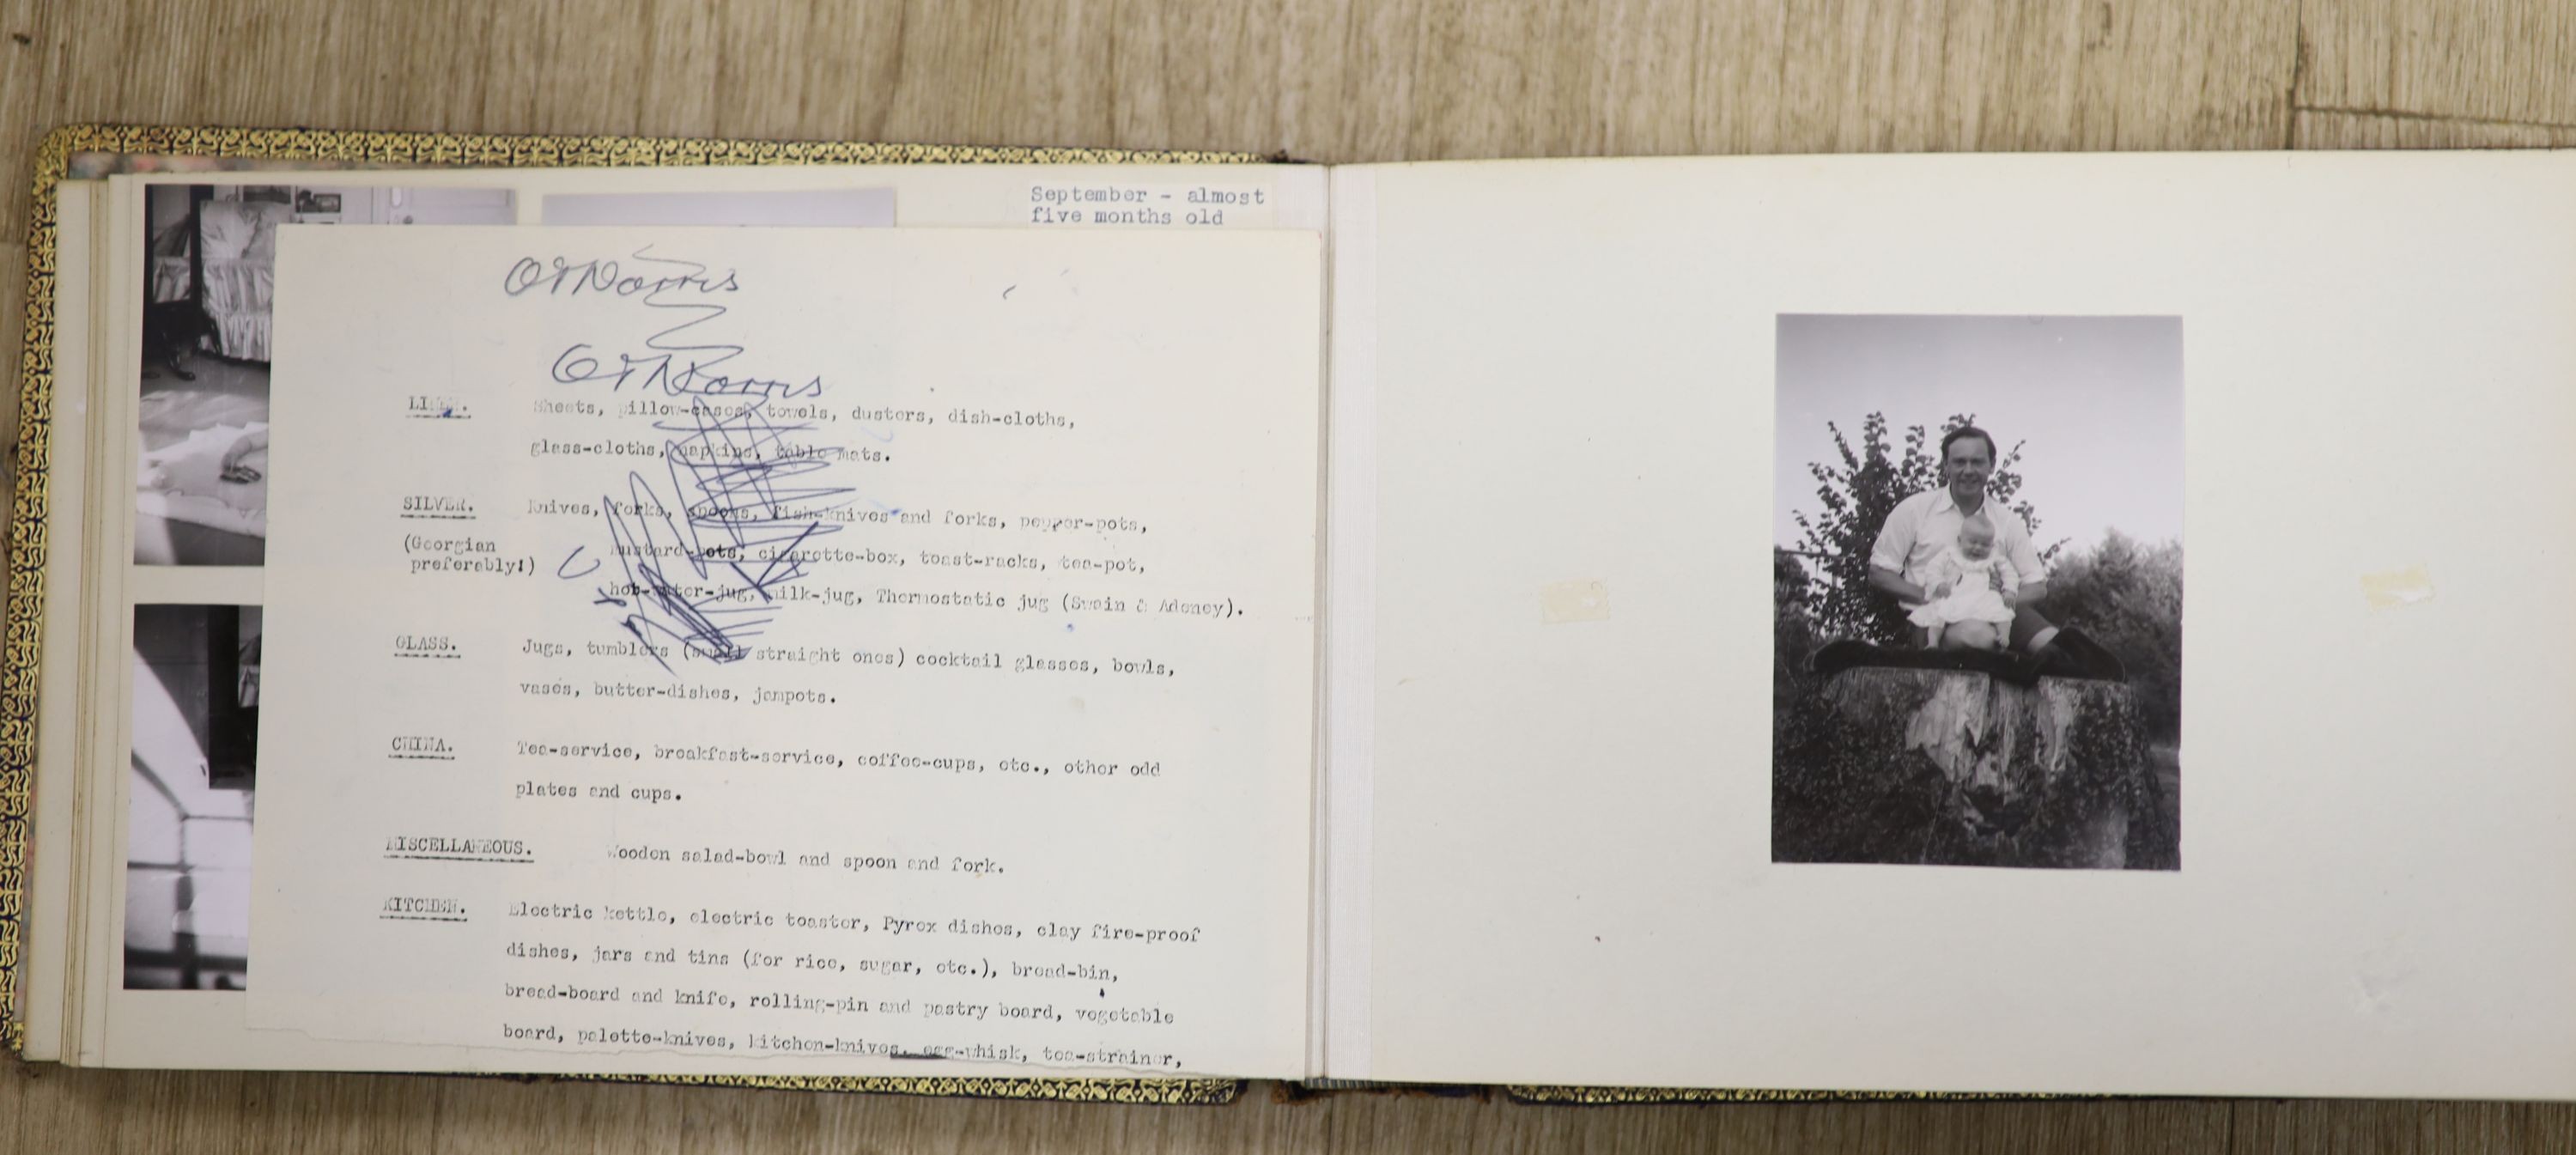 September - almost
five months old
LINEN. Sheets, pillow-cases, towels, dusters, dish-cloths,
glass-cloths, napkins, table mats.
SILVER. Knives, forks, spoons, fish-knives and forks, pepper-pots,
(Georgian
preferably!)
mustard-pots, cigarette-box, toast-racks, tea-pot,
hot-water-jug, milk-jug, Thermostatic jug (Swain & Adeney).
GLASS. Jugs, tumblers (small straight ones) cocktail glasses, bowls,
vases, butter-dishes, jampots.
CHINA. Tea-service, breakfast-service, coffee-cups, etc., other odd
plates and cups.
MISCELLANEOUS. Wooden salad-bowl and spoon and fork.
KITCHEN. Electric kettle, electric toaster, Pyrex dishes, clay fire-proof
dishes, jars and tins (for rice, sugar, etc.), bread-bin,
bread-board and knife, rolling-pin and pastry board, vegetable
board, palette-knives, kitchen-knives, egg-whisk, tea-strainer,